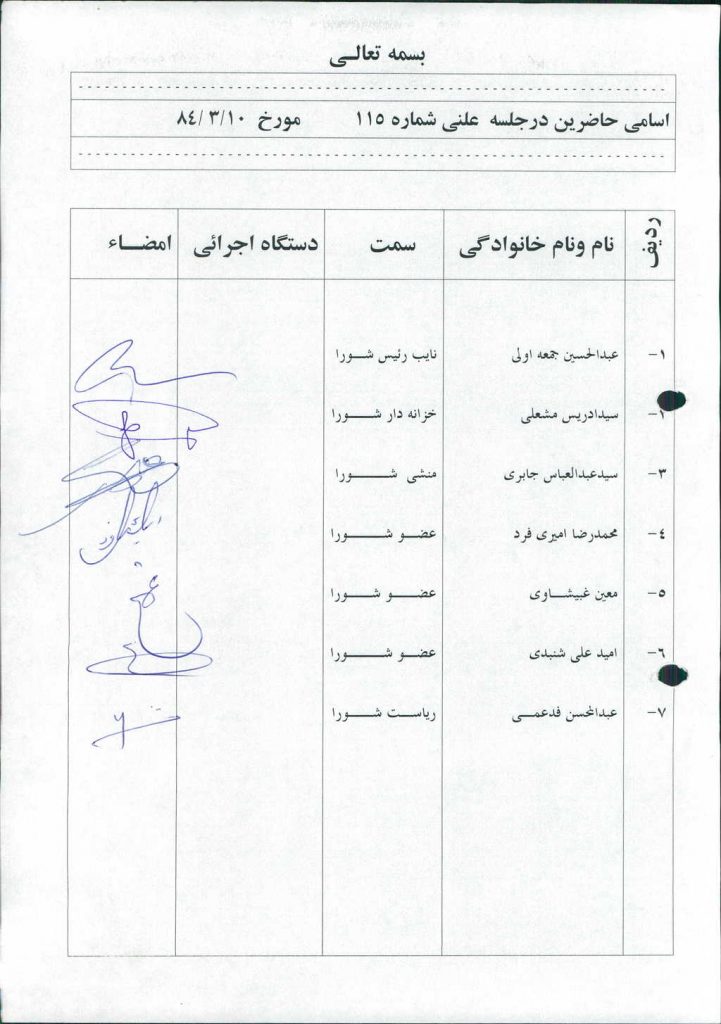 بسمه تعالــی
اسامی حاضرین درجلسه علنی شماره ۱۱۵ مورخ ۸٤/۳/۱۰
ردیف نام ونام خانوادگی سمت دستگاه اجرائی امضــاء
۱- عبدالحسین جمعه اولی نایب رئیس شــورا
۱- سیدادریس مشعلی خزانه دار شــــورا
۳- سیدعبدالعباس جابری منشی شــــورا
٤- محمدرضا امیری فرد عضــو شــــورا
۵- معین غبیشــاوی عضــو شــــورا
٦- امید علی شنبدی عضــو شــــورا
۷- عبدالمحسن فدعمــی ریاســت شــــورا